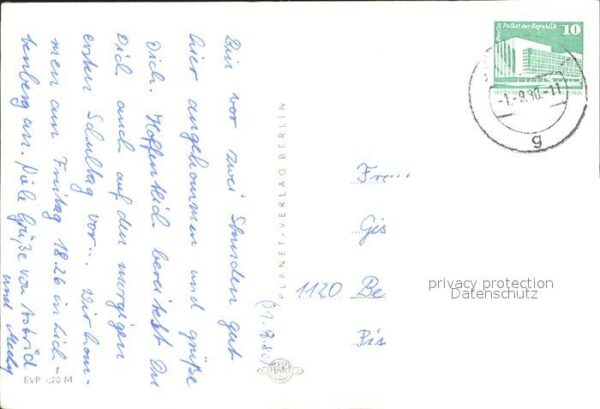 Bin vor zwei Stunden gut
hier angekommen und grüße
Dich. Hoffentlich bereitest Du
Dich auch auf den morgigen
ersten Schultag vor... Wir kom-
men am Freitag 18.26 in Lich-
tenberg an. Viele Grüße von Astrid
und
EVP -,20 M
PLANET-VERLAG BERLIN
(31.8.80)
Berlin Palast der Republik
10
-1.-9.80.-11
g
Fr...
Gis
1120 Be
Pis
privacy protection
Datenschutz